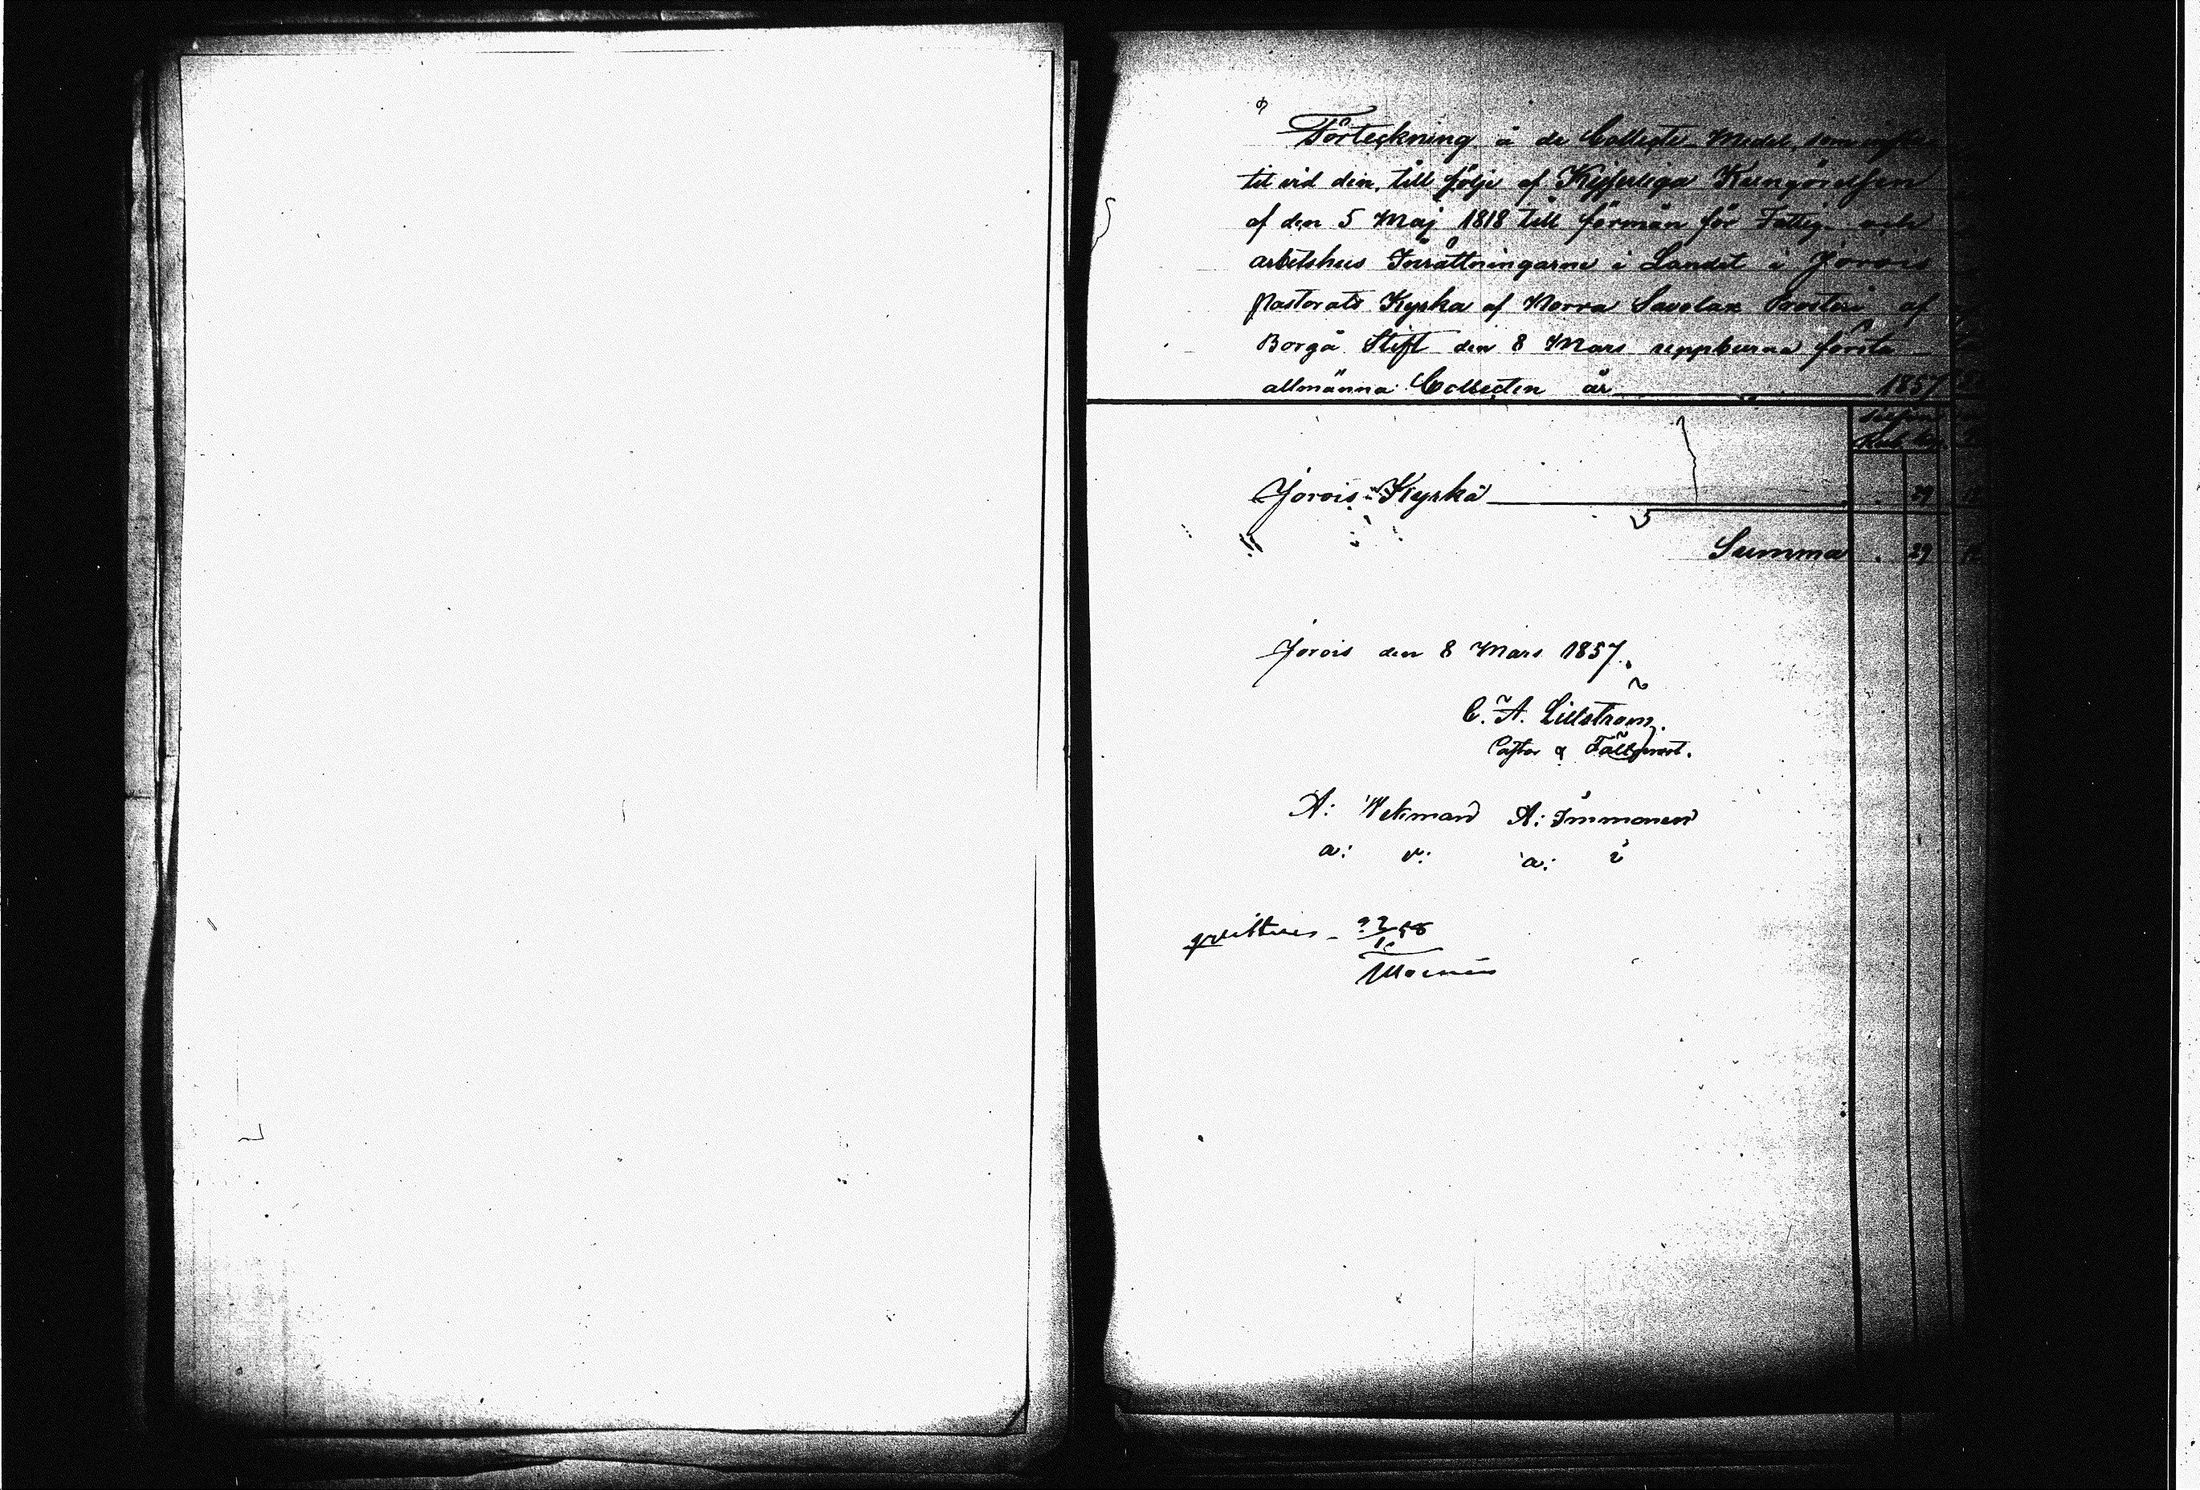 Förteckning å de Collecte Medel, som influ-
tit vid den, till följe af Kejserliga Kungörelsen
af den 5 Maj 1818 till förmån för Fattig- och
arbetshus Inrättningarne i Landet i Jorois
Pastorats Kyrka af Norra Savolax Prosteri af
Borgå Stift den 8 Mars uppburna första
allmänna Collecten år 1857
Silfver
Rub. Kop.
Jorois Kyrka 29
Summa 29
Jorois den 8 Mars 1857.
C. A. Lillström.
Pastor & Fältprost.
A: Wekman A: Immonen
a: v: a: i
qvitteras